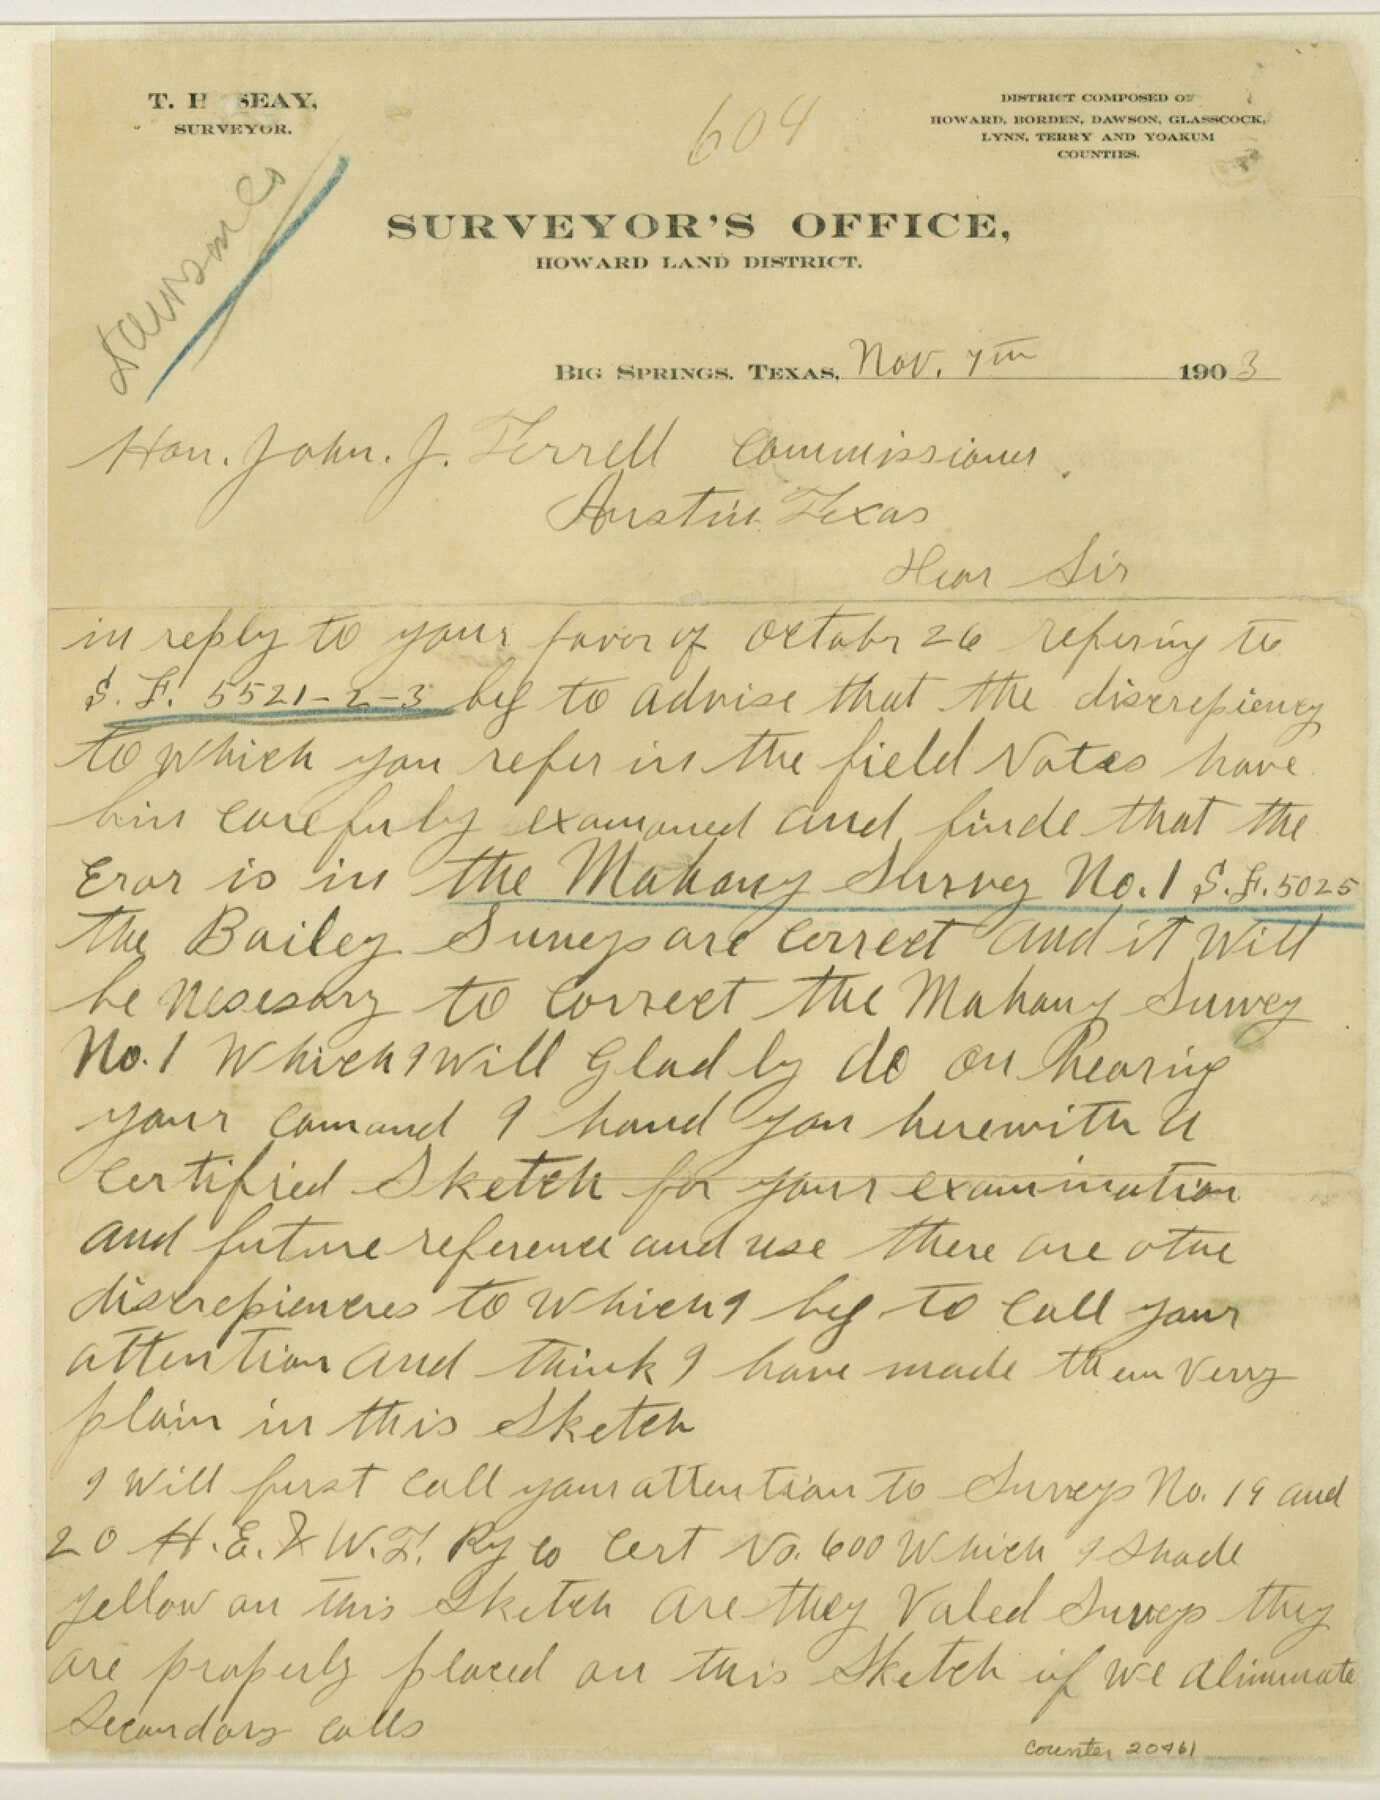 T. H SEAY,
SURVEYOR.
604
DISTRICT COMPOSED OF
HOWARD, BORDEN, DAWSON, GLASSCOCK,
LYNN, TERRY AND YOAKUM
COUNTIES.
Dawson Co
SURVEYOR'S OFFICE,
HOWARD LAND DISTRICT.
BIG SPRINGS, TEXAS, Nov. 7th 1903
Hon. John. J. Terrell Commissioner.
Austin Texas
Dear Sir
in reply to your favor of Octobr 26 refering to
S. F. 5521-2-3 beg to advise that the discrepiency
to which you refer in the field Notes have
bin carefuly examoned and finde that the
Eror is in the Mahany Survey No. 1 S.F. 5025
the Bailey Surveys are correct and it will
be nesesary to correct the Mahany Survey
No. 1 Which I will Gladly do on hearing
your comand I hand you herewith a
certified Sketch for your examination
and future reference and use there are othe
discrepiencies to which I beg to call your
attention and think I have made them verry
plain in this Sketch
I will first call your attention to Surveys No. 19 and
20 H. E. & W. T. Ry Co Cert No. 600 Which I shade
yellow on this Sketch are they Valed Surveys they
are properly placed on this Sketch if we aliminate
Secondary calls
counter 20461